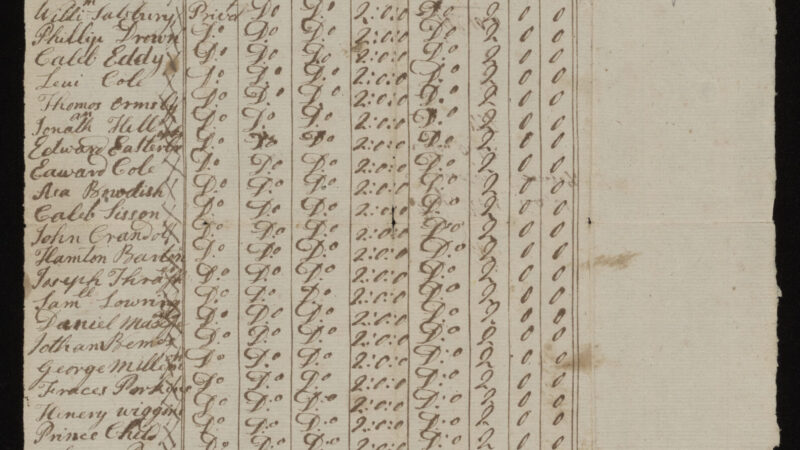 Will.m Salsbury Priva D:o D:o 2:0:0 D:o 2 0 0
Phillip Brown D:o D:o D:o 2:0:0 D:o 2 0 0
Caleb Eddy D:o D:o D:o 2:0:0 D:o 2 0 0
Levi Cole D:o D:o D:o 2:0:0 D:o 2 0 0
Thomos Ormsby D:o D:o D:o 2:0:0 D:o 2 0 0
Jonath.an Hill D:o D:o D:o 2:0:0 D:o 2 0 0
Edward D:o D:o D:o 2:0:0 D:o 2 0 0
Edward Cole D:o D:o D:o 2:0:0 D:o 2 0 0
Asa Bowdish D:o D:o D:o 2:0:0 D:o 2 0 0
Caleb Sisson D:o D:o D:o 2:0:0 D:o 2 0 0
John Crandol D:o D:o D:o 2:0:0 D:o 2 0 0
Hamton Barton D:o D:o D:o 2:0:0 D:o 2 0 0
Joseph D:o D:o D:o 2:0:0 D:o 2 0 0
Sam.ll D:o D:o D:o 2:0:0 D:o 2 0 0
Daniel D:o D:o D:o 2:0:0 D:o 2 0 0
Jotham Bemos D:o D:o D:o 2:0:0 D:o 2 0 0
George D:o D:o D:o 2:0:0 D:o 2 0 0
Fraces Perkins D:o D:o D:o 2:0:0 D:o 2 0 0
Henery Wiggins D:o D:o D:o 2:0:0 D:o 2 0 0
Prince Child D:o D:o D:o 2:0:0 D:o 2 0 0